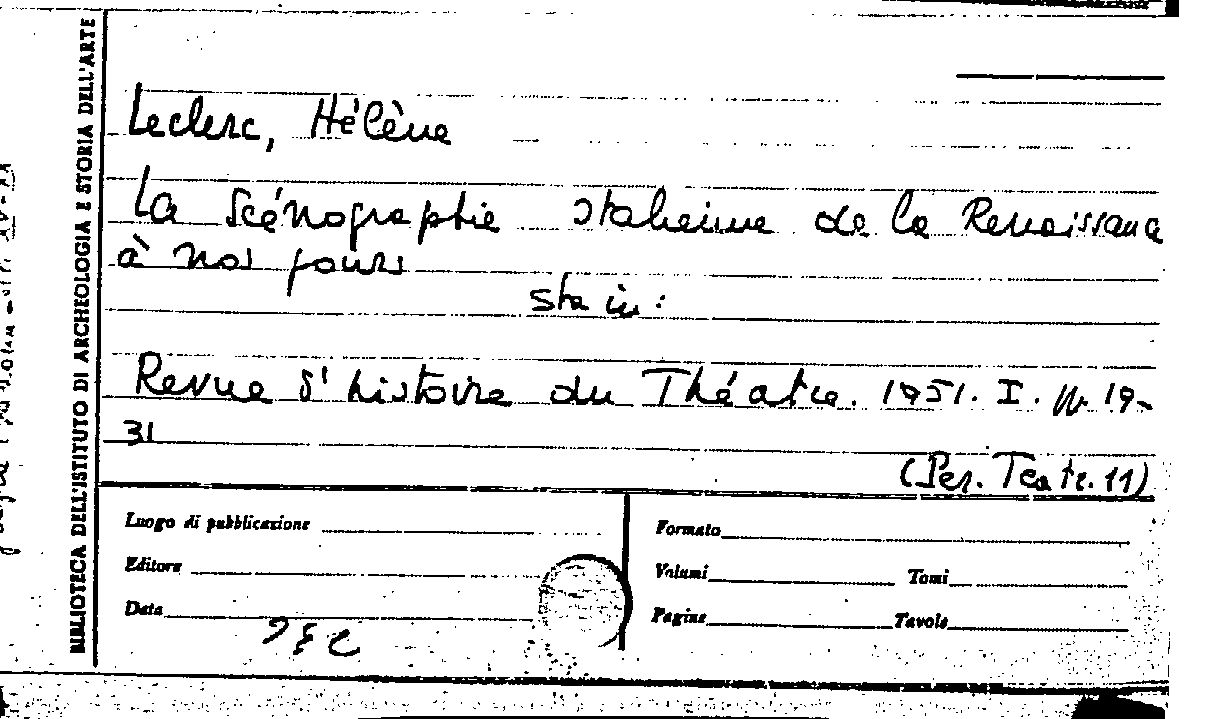 BIBLIOTECA DELL'ISTITUTO DI ARCHEOLOGIA E STORIA DELL'ARTE
Leclerc, Hélène
La Scénographie italienne de la Renaissance
à nos jours
Sta in:
Revue d'histoire du Théatre. 1951. I. pp. 19-
31
(Per. Teatr. 11)
Luogo di pubblicazione
Formato
Editore
Volumi Tomi
Data
Pagine Tavole